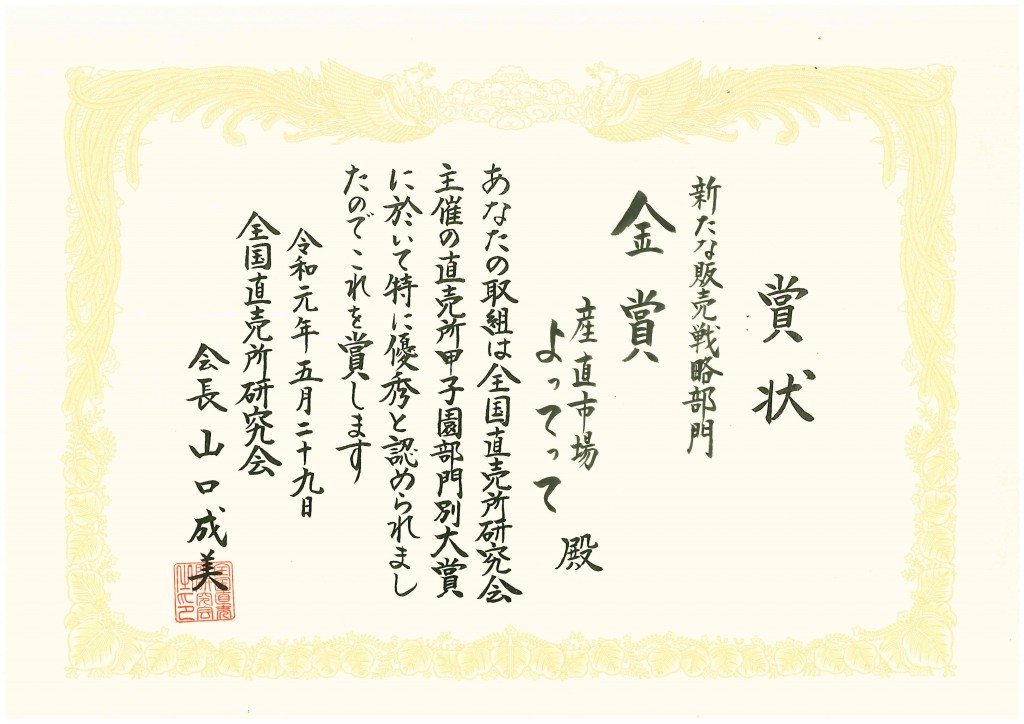 賞状
新たな販売戦略部門
金賞
産直市場
よってって
殿
あなたの取組は全国直売所研究会
主催の直売所甲子園部門別大賞
に於いて特に優秀と認められまし
たのでこれを賞します
令和元年五月二十九日
全国直売所研究会
会長 山口成美